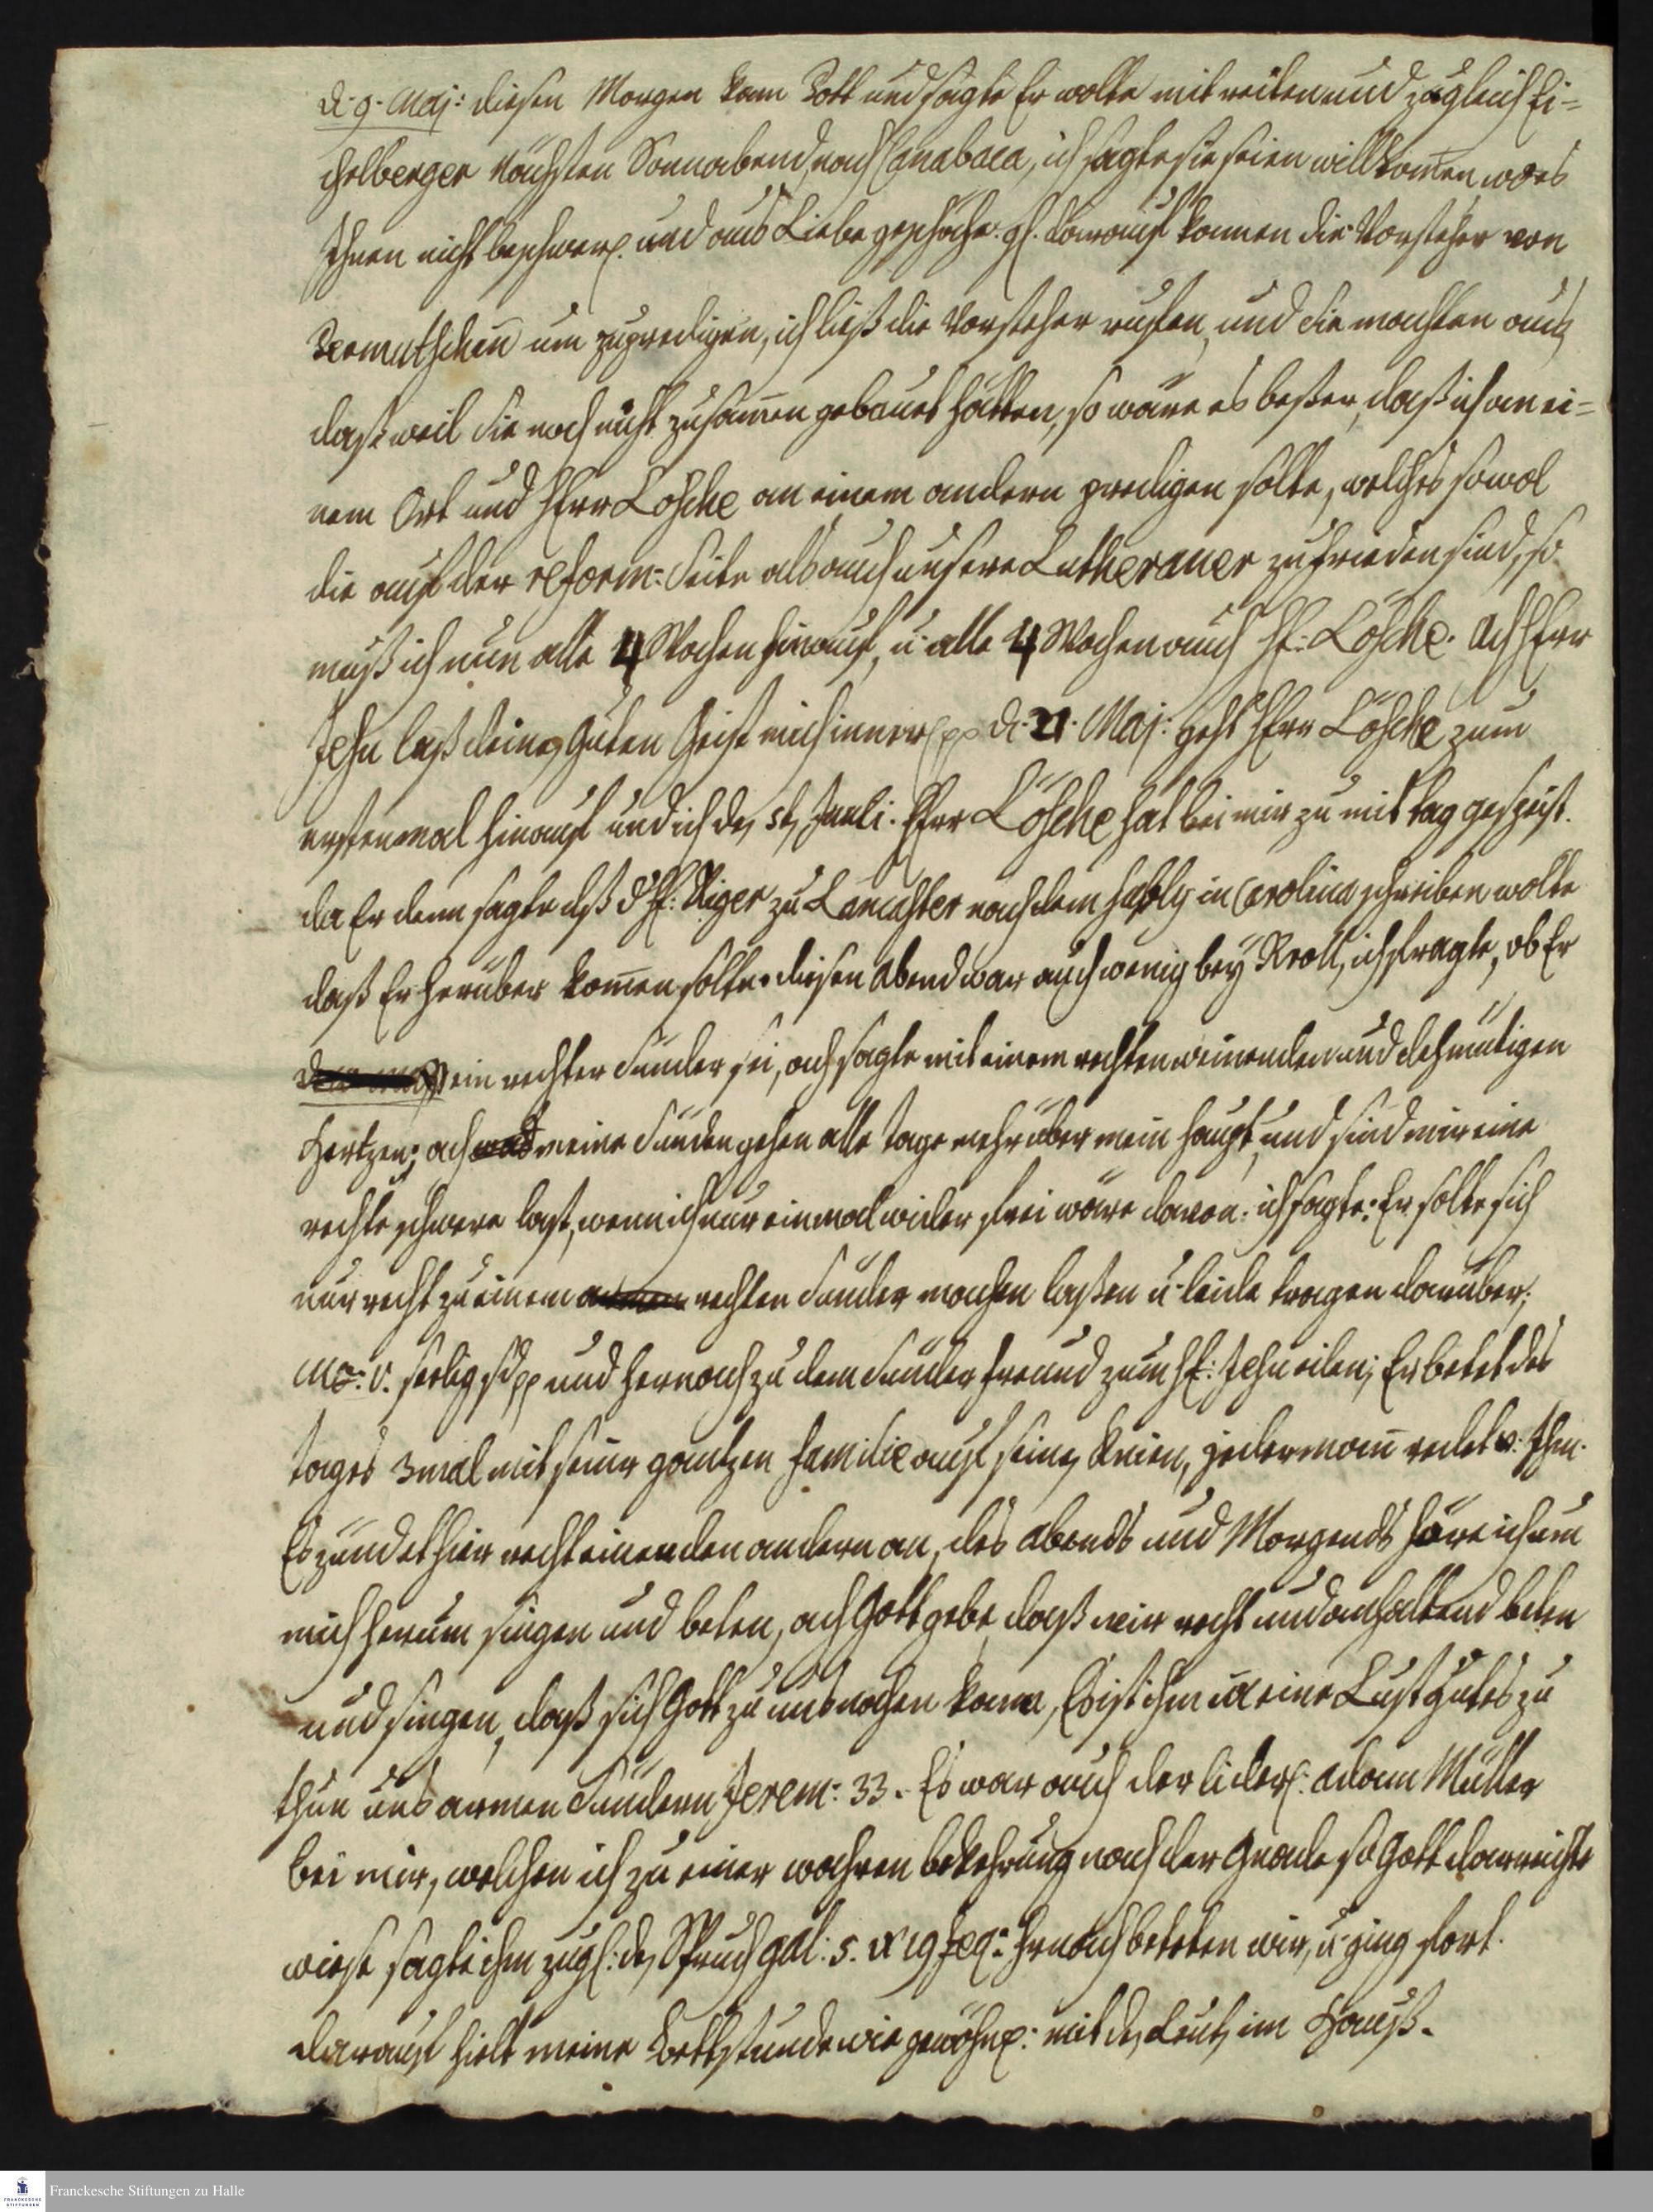 d. 9. Maj: diesen Morgen kam Pott und sagte Er wolte mit reiten und zugleich Ei-
chelberger nächsten Sonnabend, nach Canabaca, ich sagte sie seien willkom̄en wo es
Ihnen nicht beschwerl. und aus Liebe geschähe. gl. darauf kamen die Vorsteher von
um zupredigen, ich ließ die Vorsteher ruffen, und sie machten aus,
daß weil sie noch nicht zusam̄en gebauet hätten, so wäre es beßer, daß ich an ei-
nem Ort und Herr Lösche an einem andern predigen solte, welches sowol
die auf der reform: Seite als auch unsere Lutheraner zufrieden sind, so
muß ich nun alle 4 Wochen hinauf, u. alle 4 Wochen auch H: Lösche. Ach Herr
Jesu laß deinen guten Geist mich innerl. pp d. 21. Maj: geht Herr Lösche zum
erstenmal hinauf und ich den 5ten Junli. Herr Lösche hat bei mir zu mittag gespeist.
da Er denn sagte dß d. H: Kiger zu Lancaster nach dem in Carolina schreiben wolte
daß Er herüber kom̄en solte. diesen Abend war auch wenig bey Kroll, ich fragte, ob Er
ein rechter Sünder sei, ach sagte mit einem rechten weinenden und dehmütigen
Hertzen; ach und meine Sünden gehen alle tage mehr über mein haupt, und sind mir eine
rechte schwere last, wenn ich nur einmal wider frei wäre davon. ich sagte: Er solte sich
nur recht zu einem armen rechten Sünder machen laßen u. leide tragen darüber;
Ma: 5. selig sd pp und hernach zu dem Sünder freund zum H: Jesu eilen; Er betet des
tages 3mal mit seiner gantzen familie auf seinen Knien, jederman̄ redet v. Ihm.
Es zündet hier recht einen den andern an, des Abends und Morgends höre ich um
mich herum singen und beten, ach Gott gebe, daß wir recht und anhaltend beten
und singen, daß sich Gott zu uns nahen kann, Es ist ihm ja eine Lust gutes zu
thun uns armen Sündern Jerem: 33. Es war auch der liderl: Adam Müller
bei mir, welchen ich zu einer wahren bekehrung nach der Gnade so Gott darreichte
wiese sagte ihm zugl: den Spruch Gal: 5. v 19 seq: hernach beteten wir, u. ging fort.
darauf hielt meine Bettstunde wie gewöhnl: mit den Leuten im Hauß.
Franckesche Stiftungen zu Halle
FRANCKESCHE STIFTUNGEN